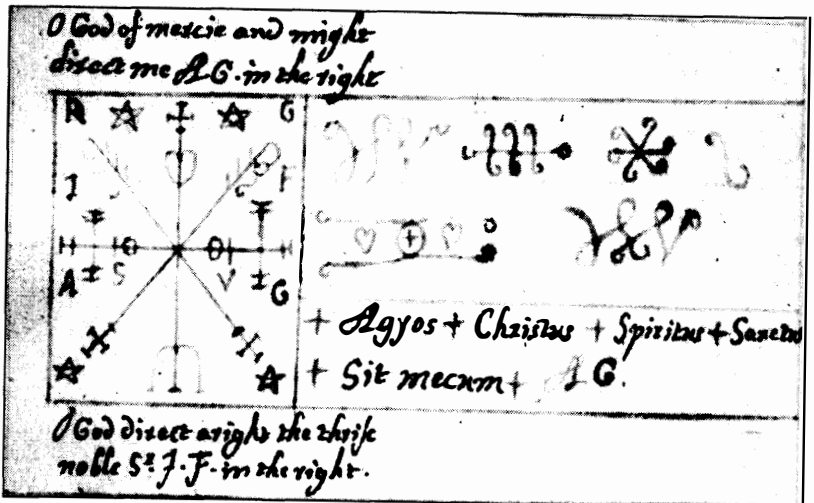 O God of mercie and might
direct me AG. in the right
R G
I F
A S V G
+ Agyos + Christus + Spiritus + Sanctus
+ Sit mecum + AG.
O God direct aright the thrise
noble Sr. J. F. in the right.